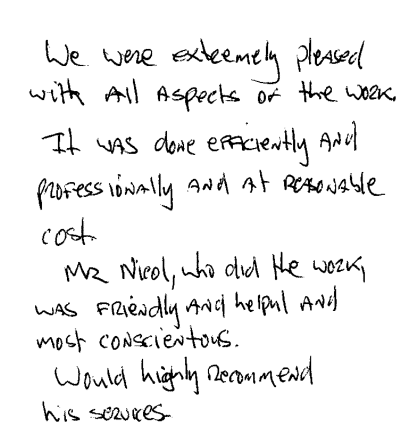 We were extremely pleased
with all aspects of the work.
It was done efficiently and
professionally and at reasonable
cost.
Mr Nicol, who did the work,
was friendly and helpul and
most conscientous.
Would highly recommend
his services